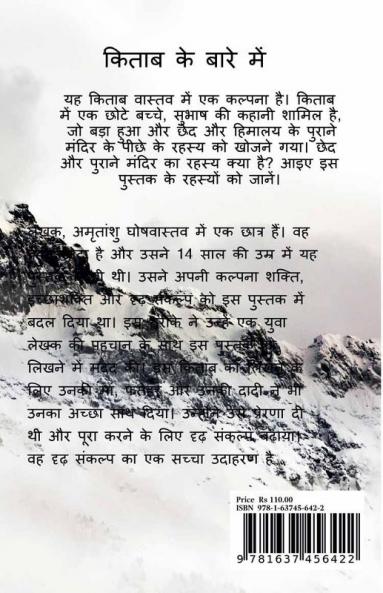 किताब के बारे में
यह किताब वास्तव में एक कल्पना है। किताब
में एक छोटे बच्चे, सुभाष की कहानी शामिल है,
जो बड़ा हुआ और छेद और हिमालय के पुराने
मंदिर के पीछे के रहस्य को खोजने गया। छेद
और पुराने मंदिर का रहस्य क्या है? आइए इस
पुस्तक के रहस्यों को जानें।
लेखक, अमृतांशु घोषवास्तव में एक छात्र हैं। वह
है और उसने 14 साल की उम्र में यह
थी। उसने अपनी कल्पना शक्ति,
इच्छाशक्ति और दृढ़ संकल्प को इस पुस्तक में
बदल दिया था। इस तरीके ने उन्हें एक युवा
लेखक की पहचान के साथ इस पुस्तक को
लिखने में मदद की। इस किताब को लिखने के
लिए उनकी माँ, और उनकी दादी ने भी
उनका अच्छा साथ दिया। उन्होंने उसे प्रेरणा दी
थी और पूरा करने के लिए दृढ़ संकल्प बढ़ाया।
वह दृढ़ संकल्प का एक सच्चा उदाहरण है
Price Rs 110.00
ISBN 978-1-63745-642-2
9 781637 456422